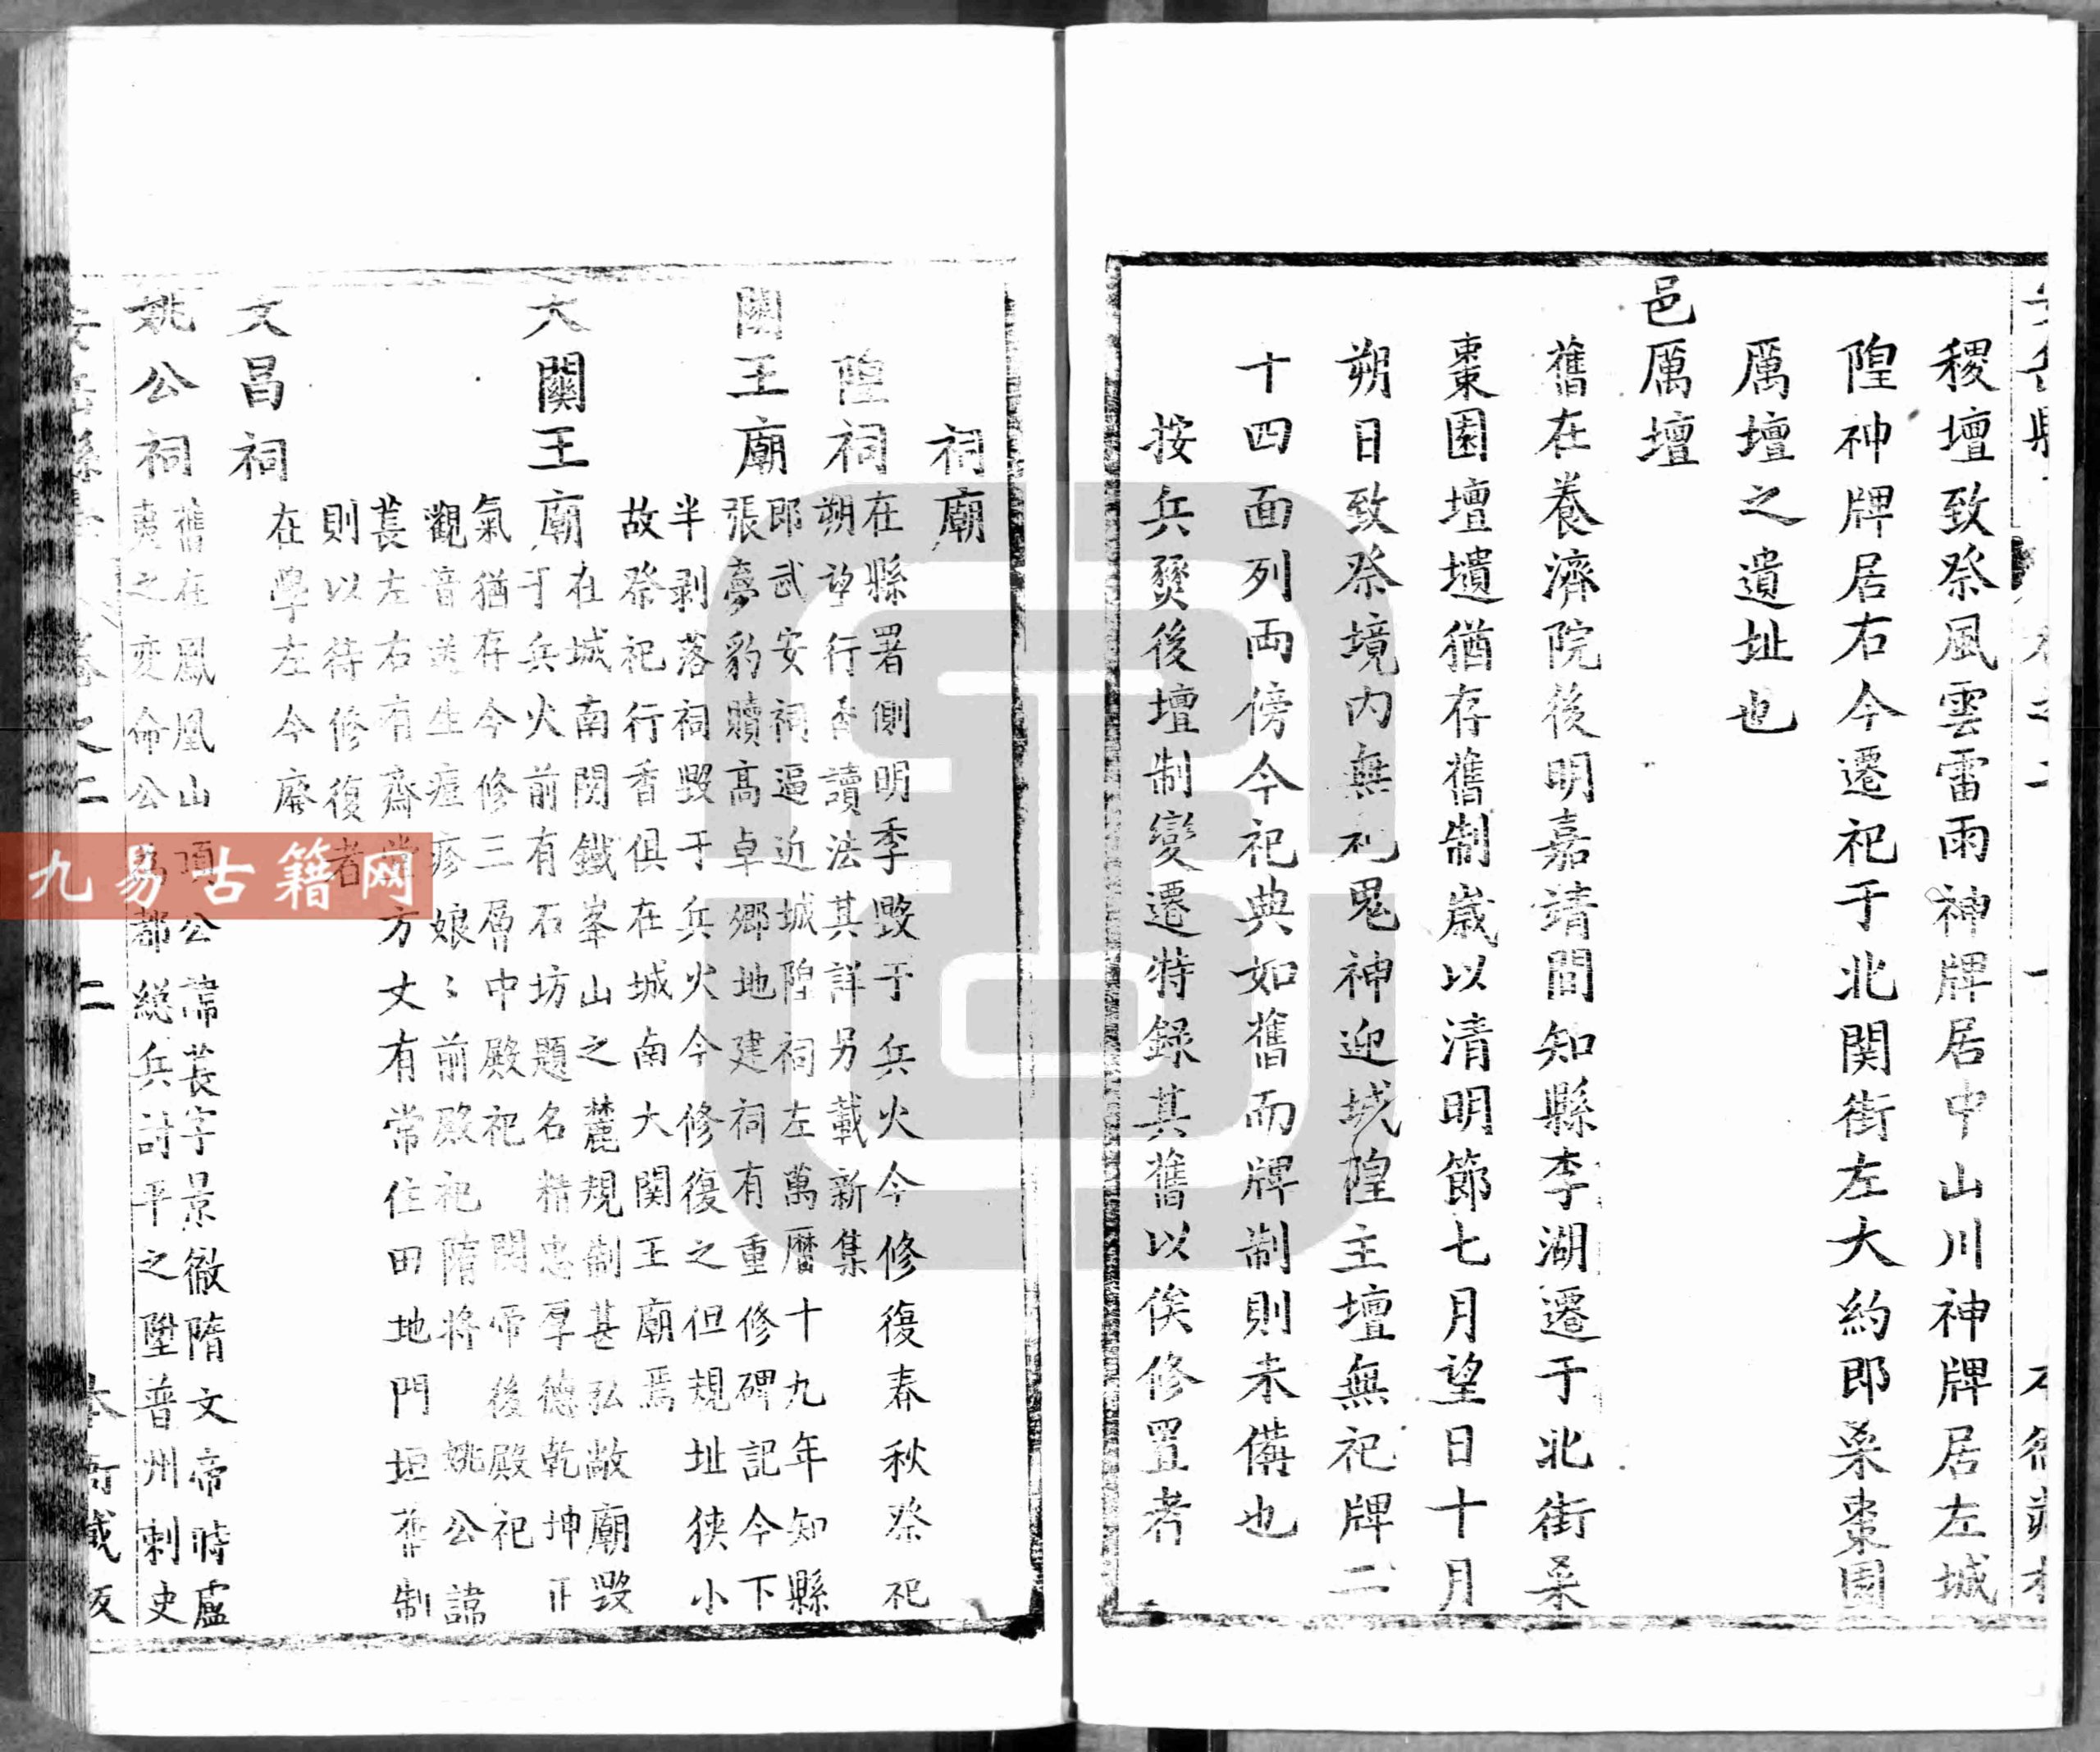 稷壇致祭風雲雷雨神牌居中山川神牌居左城
隍神牌居右今遷祀于北関街左大約郎桒棗園
厲壇之遺址也
邑厲壇
舊在養濟院後明嘉靖間知縣李湖遷于北街桒
棗園壇壝猶存舊制歲以清明節七月望日十月
朔日致祭境内無祀鬼神迎城隍主壇無祀牌二
十四面列両傍今祀典如舊而牌制則未備也
按兵燹後壇制變遷特録其舊以俟修置者
祠廟
隍祠
在縣署側明季毀于兵火今修復春秋祭祀
朔望行香讀法其詳另載新集
關王廟
郎武安祠逼近城隍祠左萬曆十九年知縣
張夢豹贖高卓鄉地建祠有重修碑記今下
半剥落祠毀于兵火今修復之但規址狹小
故祭祀行香俱在城南大関王廟焉
大關王廟
在城南関鐵峯山之麓規制甚弘敞廟毀
于兵火前有石坊題名精忠厚德乾坤正
氣猶存今修三層中殿祀関帝後殿祀
觀音送生痘疹娘〻前殿祀隋將姚公諱
萇左右有齋堂方丈有常住田地門垣舊制
則以待修復者
文昌祠
在學左今廢
姚公祠
舊在鳳凰山頂公諱萇字景徹隋文帝時盧
夷之变命公為都総兵討平之陞普州刺史
九易古籍网
卷之二
二
本衙藏板